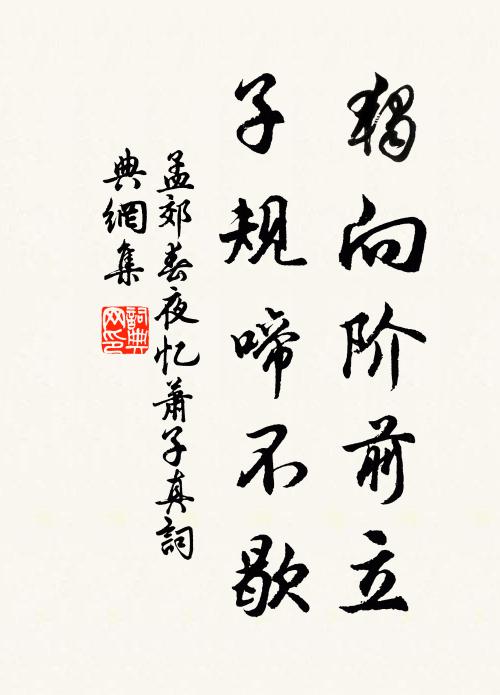 独向阶前立
子规啼不歇
孟郊春夜忆萧子真詞
典網集
詞典网印